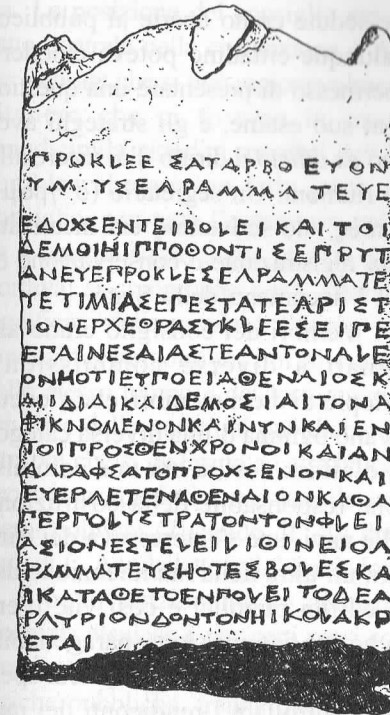 ΠΡΟΚΛΕΕΣΑΤΑΡΒΟΕΥΟΝ
ΥΜ.ΥΣΕΓΡΑΜΜΑΤΕΥΕ
ΕΔΟΧΣΕΝΤΕΙΒΟΛΕΙΚΑΙΤΟΙ
ΔΕΜΟΙΗΙΠΠΟΘΟΝΤΙΣΕΠΡΥΤ
ΑΝΕΥΕΠΡΟΚΛΕΣΕΓΡΑΜΜΑΤΕ
ΥΕΤΙΜΙΑΣΕΠΕΣΤΑΤΕΑΡΙΣΤ
ΙΟΝΕΡΧΕΘΡΑΣΥΚΛΕΕΣΕΙΠΕ
ΕΠΑΙΝΕΣΑΙΑΣΤΕΑΝΤΟΝΑΛΕ
ΟΝΗΟΤΙΕΥΠΟΕΙΑΘΕΝΑΙΟΣΚ
ΑΙΙΔΙΑΙΚΑΙΔΕΜΟΣΙΑΙΤΟΝΑ
ΦΙΚΝΟΜΕΝΟΝΚΑΙΝΥΝΚΑΙΕΝ
ΤΟΙΠΡΟΣΘΕΝΧΡΟΝΟΙΚΑΙΑΝ
ΑΓΡΑΦΣΑΤΟΠΡΟΧΣΕΝΟΝΚΑΙ
ΕΥΕΡΓΕΤΕΝΑΘΕΝΑΙΟΝΚΑΘΑ
ΠΕΡΠΟΛΥΣΤΡΑΤΟΝΤΟΝΦΛΕΙ
ΑΣΙΟΝΕΣΤΕΛΕΙΛΙΘΙΝΕΙΟΓ
ΡΑΜΜΑΤΕΥΣΗΟΤΕΣΒΟΛΕΣΚΑ
ΙΚΑΤΑΘΕΤΟΕΝΠΟΛΕΙΤΟΔΕΑ
ΡΓΥΡΙΟΝΔΟΝΤΟΝΗΙΚΟΛΑΚΡ
ΕΤΑΙ